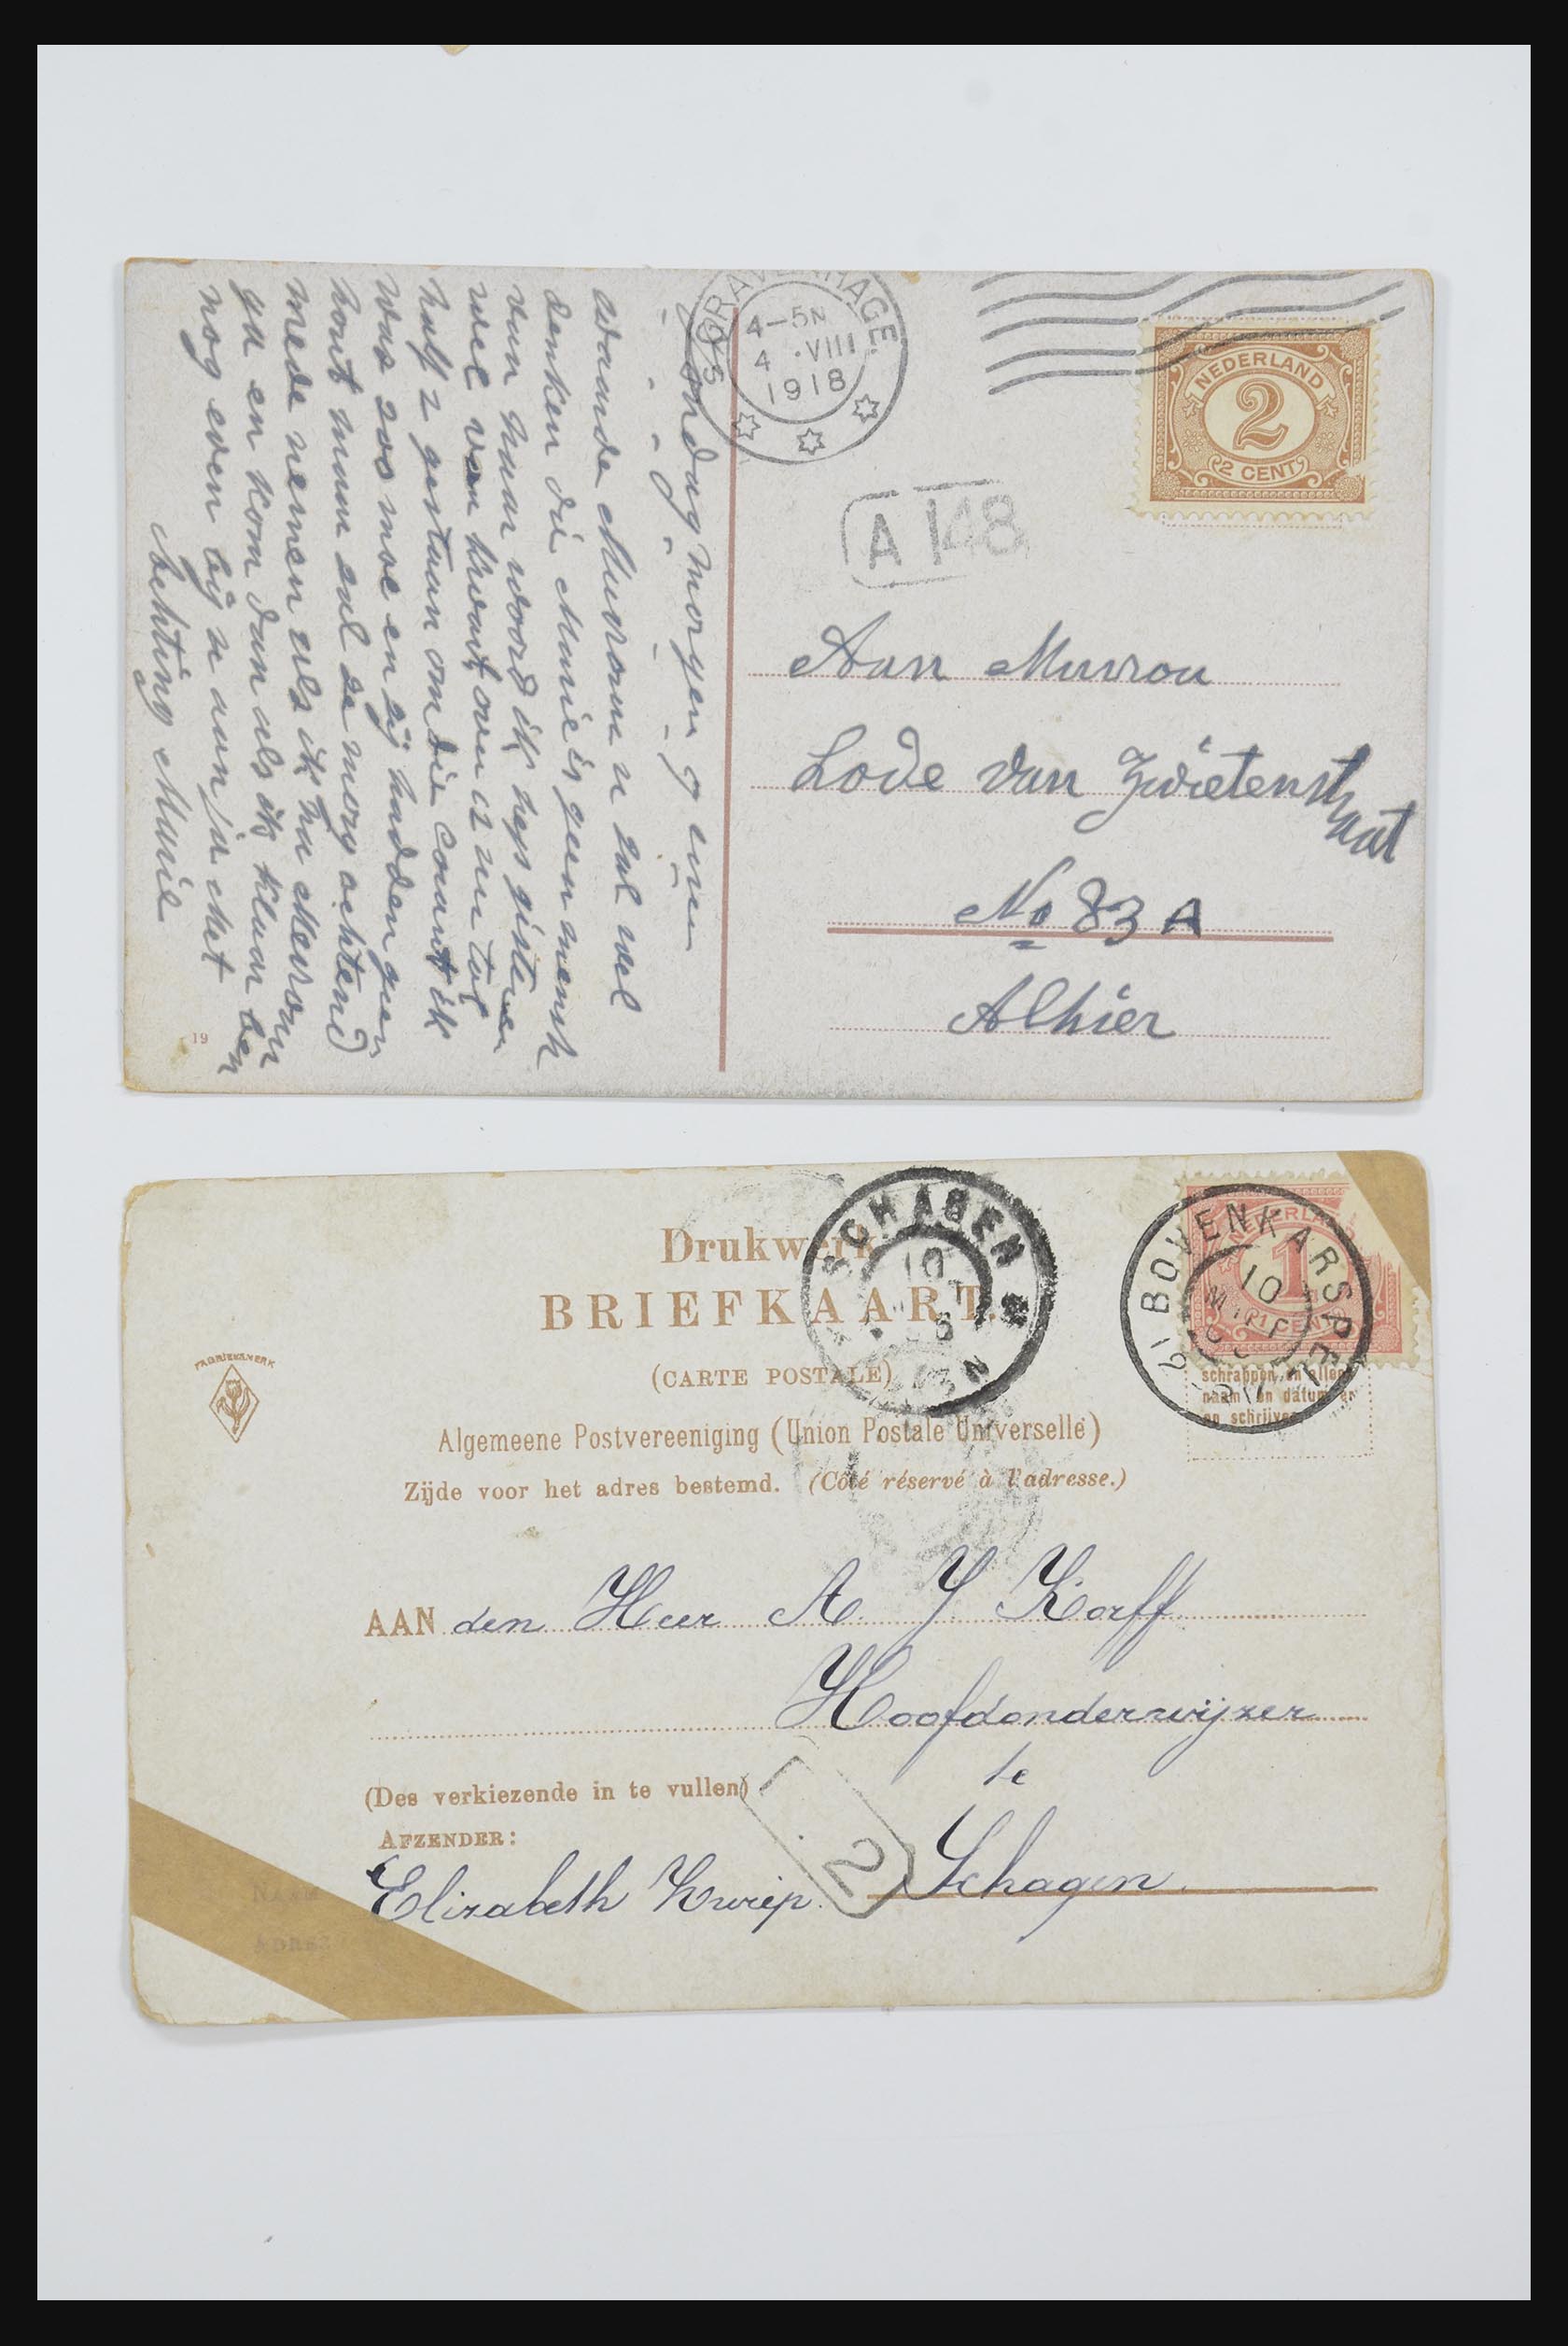 'S GRAVENHAGE
4-5N
4 .VIII
1918
NEDERLAND
2
2 CENT
A 148
Aan Mevrou
Lode van Zwietenstraat
No 83 A
Alhier
Zondag morgen 9
Waarde Mevrouw u zal wel
denken die Marie is geen mensch
van haar woord ik ben gisteren
wel van kwart over 12 tot
half 2 gestaan om die ik
was zoo moe en zij hadden geen
hout maar zal ze morg ochtend
mede nemen als ik na Mevrouw
ga en kom dan als ik klaar ben
nog even bij u aan ja Met
achting Marie
19
Drukwerk
BRIEFKAART.
(CARTE POSTALE)
Algemeene Postvereeniging (Union Postale Universelle)
Zijde voor het adres bestemd. (Côté réservé à l'adresse.)
FABRIEKSMERK
SCHAGEN
10
BOVENKARSPEL
10
NEDERLAND
1
1 CENT
schrappen en alleen
naam en datum er
op schrijven
AAN den Heer A Y Korff
Hoofdonderwijzer
te
Schagen
(Des verkiezende in te vullen)
AFZENDER:
Elizabeth
NAAM
ADRES
2